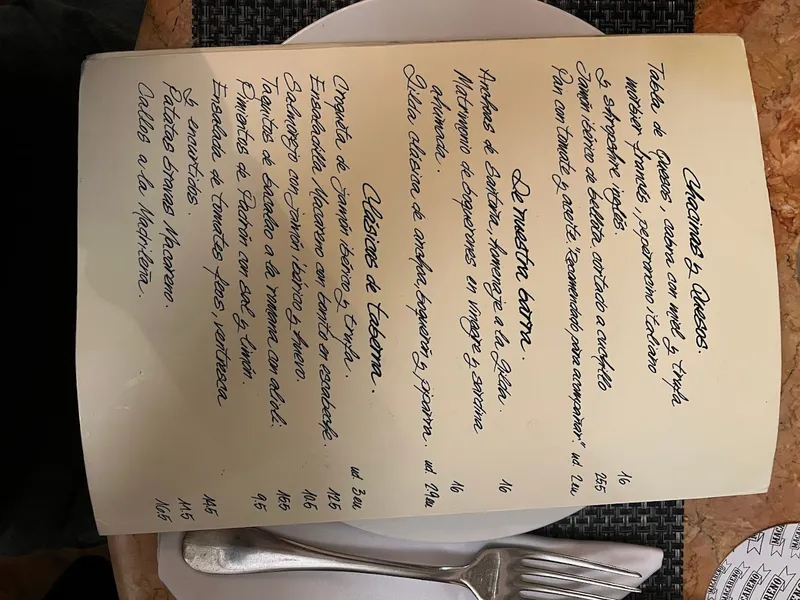 Chacinas y Quesos.
Tabla de quesos, cabra con miel y trufa
morbier francés, peperoncino italiano
y shropshire inglés. 16
Jamón ibérico de bellota, cortado a cuchillo 25.5
Pan con tomate y aceite. "Recomendado para acompañar". ud. 2 eu
De nuestra barra.
Anchoas de Santoña, homenaje a la Gilda. 16
Matrimonio de boquerones en vinagre y sardina
ahumada. 16
Gilda clásica de anchoa, boquerón y piparra. ud. 2.9 eu
Clásicos de taberna.
Croqueta de jamón ibérico y trufa. ud. 3 eu
Ensaladilla Macareno con bonito en escabeche. 12.5
Salmorejo con jamón ibérico y huevo. 10.5
Taquitos de bacalao a la romana con alioli. 15.5
Pimientos de Padrón con sal y limón. 9.5
Ensalada de tomates feos, ventresca
y encurtidos. 14.5
Patatas bravas Macareno. 11.5
Callos a la Madrileña. 16.5
MACARENO